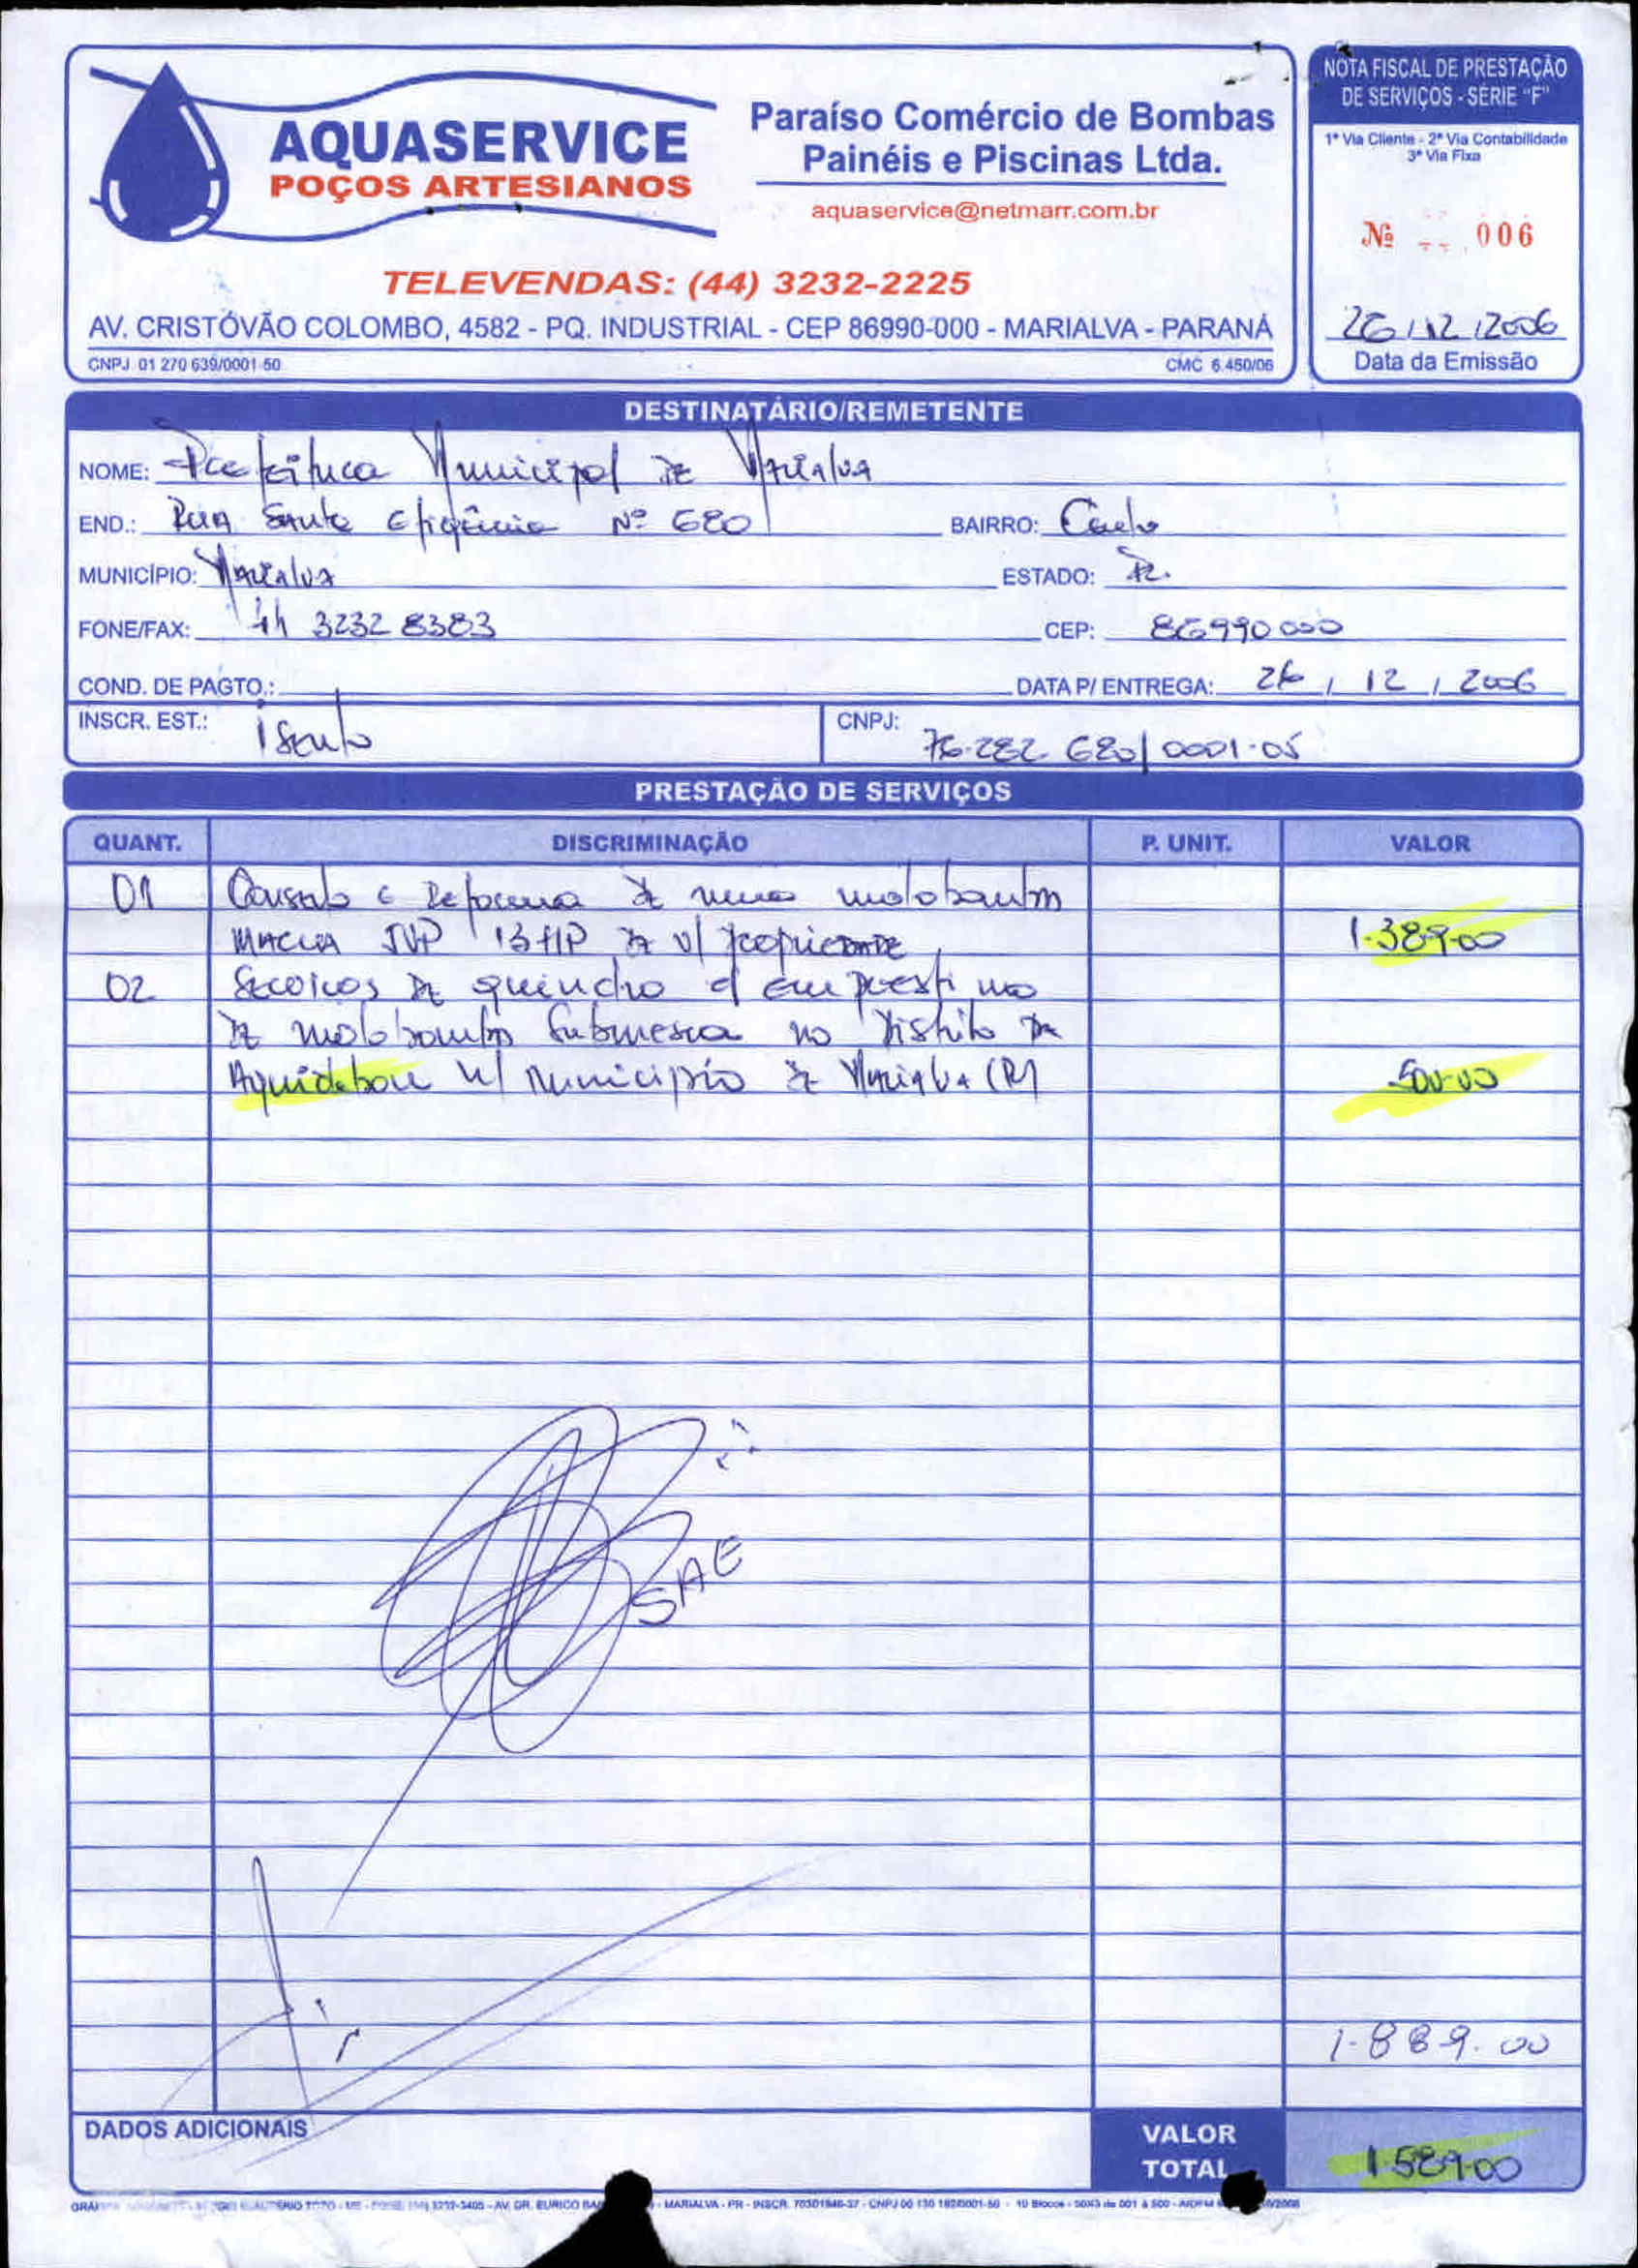 AQUASERVICE
POÇOS ARTESIANOS
Paraíso Comércio de Bombas
Painéis e Piscinas Ltda.
aquaservice@netmarr.com.br
TELEVENDAS: (44) 3232-2225
AV. CRISTÓVÃO COLOMBO, 4582 - PQ. INDUSTRIAL - CEP 86990-000 - MARIALVA - PARANÁ
CNPJ 01 270 639/0001-50 CMC 6.450/06
NOTA FISCAL DE PRESTAÇÃO
DE SERVIÇOS - SÉRIE "F"
1ª Via Cliente - 2ª Via Contabilidade
3ª Via Fixa
Nº 006
26/12/2006
Data da Emissão
DESTINATÁRIO/REMETENTE
NOME: Prefeitura Municipal de Marialva
END.: Rua Santa Efigênia Nº 680 BAIRRO: Centro
MUNICÍPIO: Marialva ESTADO: Pr.
FONE/FAX: 44 3232 8383 CEP: 86990000
COND. DE PAGTO.: DATA P/ ENTREGA: 26/12/2006
INSCR. EST.: Isento CNPJ: 76.282.680/0001-05
PRESTAÇÃO DE SERVIÇOS
QUANT. DISCRIMINAÇÃO P. UNIT. VALOR
01 Conserto e Reforma de uma motobomba
13 HP de v/ propriedade 1.389.00
02 Servicos de guincho e emprestimo
de motobomba Submersa no Distrito de
Aquidaban n/ municipio de Marialva (Pr) 500.00
SAE
1.889.00
DADOS ADICIONAIS
VALOR
TOTAL 1589.00